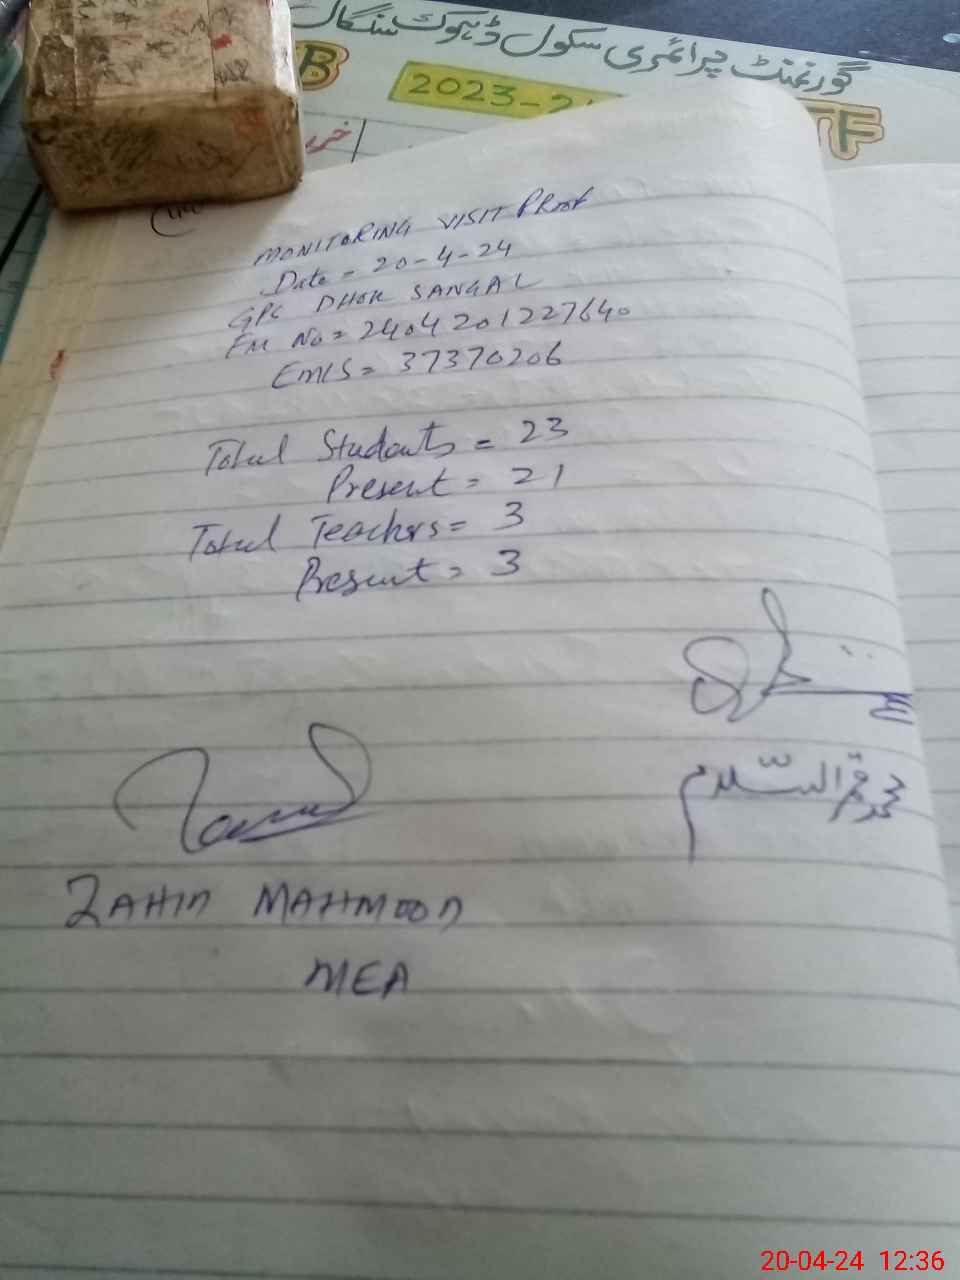 گورنمنٹ پرائمری سکول ڈہوک سنگال
B
2023-2
TF
MONITORING VISIT PROOF
Date = 20-4-24
GPS DHOK SANGAL
FM No = 2404201227640
EMIS = 37370206
Total Students = 23
Present = 21
Total Teachers = 3
Present = 3
محمد قمر السلام
ZAHID MAHMOOD
MEA
20-04-24 12:36